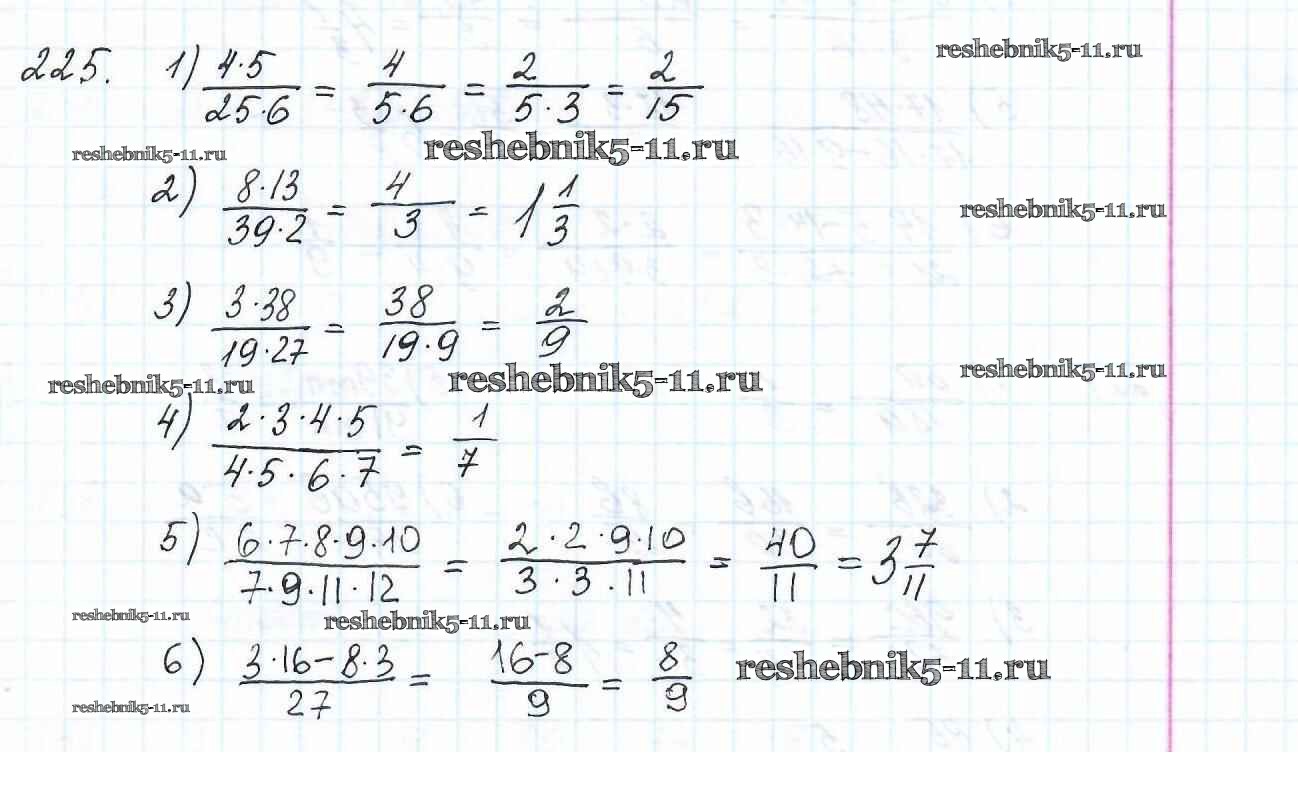 225. 1) 4·5/25·6 = 4/5·6 = 2/5·3 = 2/15
reshebnik5-11.ru
reshebnik5-11.ru reshebnik5-11.ru
2) 8·13/39·2 = 4/3 = 1 1/3
reshebnik5-11.ru
3) 3·38/19·27 = 38/19·9 = 2/9
reshebnik5-11.ru reshebnik5-11.ru reshebnik5-11.ru
4) 2·3·4·5/4·5·6·7 = 1/7
5) 6·7·8·9·10/7·9·11·12 = 2·2·9·10/3·3·11 = 40/11 = 3 7/11
reshebnik5-11.ru reshebnik5-11.ru
6) 3·16-8·3/27 = 16-8/9 = 8/9
reshebnik5-11.ru
reshebnik5-11.ru